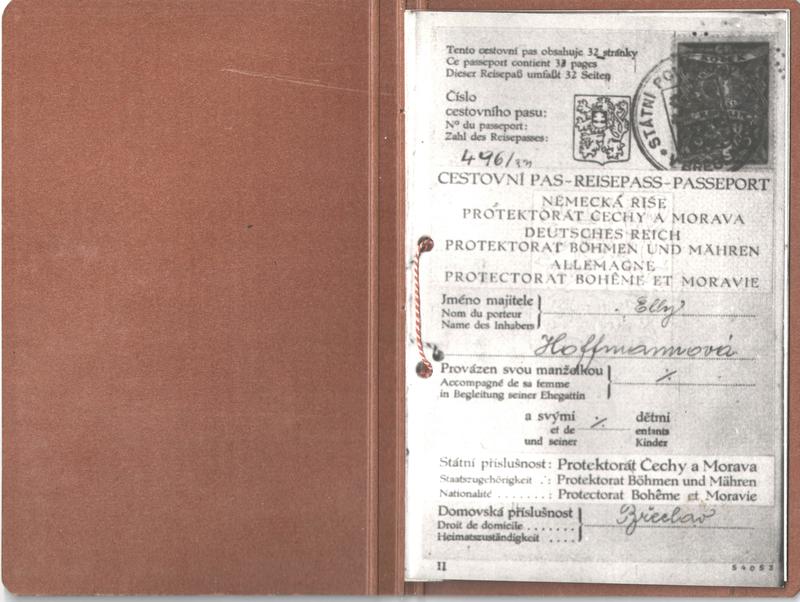 Tento cestovní pas obsahuje 32 stránky
Ce passeport contient 32 pages
Dieser Reisepaß umfaßt 32 Seiten
Číslo
cestovního pasu:
N° du passeport:
Zahl des Reisepasses:
496/39
STÁTNÍ PO
CESTOVNÍ PAS-REISEPASS-PASSEPORT
NĚMECKÁ ŘÍŠE
PROTEKTORÁT ČECHY A MORAVA
DEUTSCHES REICH
PROTEKTORAT BÖHMEN UND MÄHREN
ALLEMAGNE
PROTECTORAT BOHÊME ET MORAVIE
Jméno majitele
Nom du porteur
Name des Inhabers
Elly
Hoffmannová
Provázen svou manželkou
Accompagné de sa femme
in Begleitung seiner Ehegattin
a svými dětmi
et de enfants
und seiner Kinder
Státní příslušnost: Protektorát Čechy a Morava
Staatszugehörigkeit .: Protektorat Böhmen und Mähren
Nationalité . . . . . . : Protectorat Bohême et Moravie
Domovská příslušnost
Droit de domicile . . . . . . .
Heimatszuständigkeit . . . .
Břeclav
II
54053